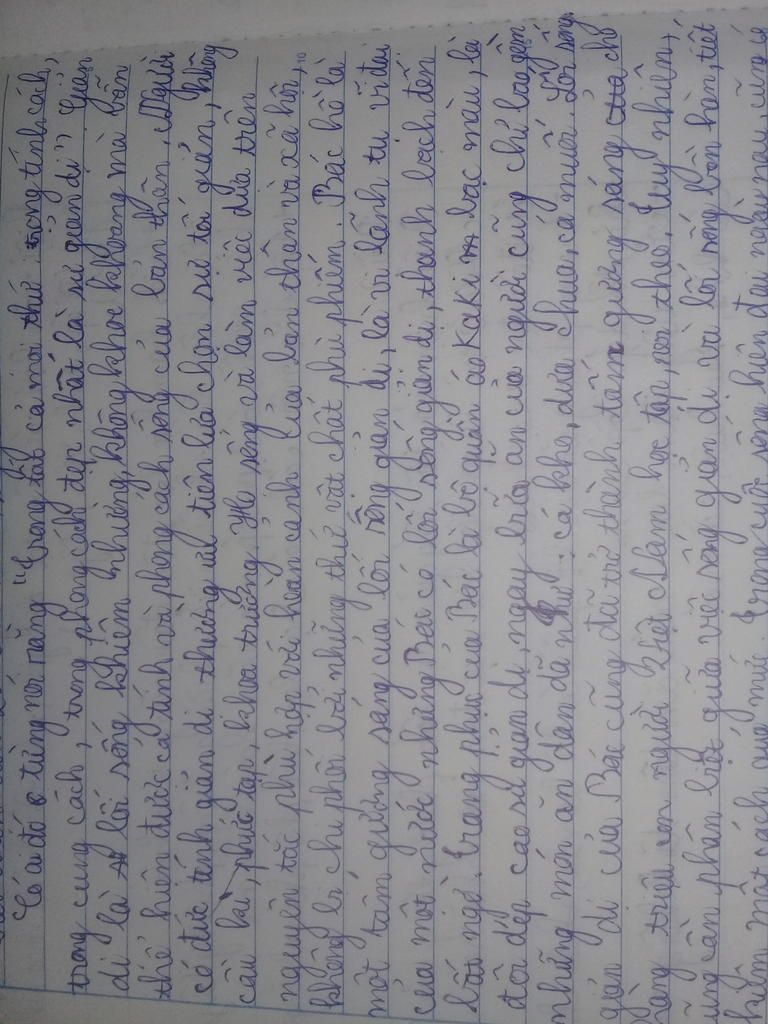 Có ai đó từng nói rằng "Trong tất cả mọi thứ trong tính cách,
trong cung cách, trong phong cách đẹp nhất là sự giản dị". Giản
dị là lối sống khiêm nhường, không khoe khoang mà vẫn
thể hiện được cá tính và phong cách sống của bản thân. Người
có đức tính giản dị thường ưu tiên lựa chọn sự tối giản, không
cầu kì, phức tạp, khoa trương. Họ sống và làm việc dựa trên
nguyên tắc phù hợp với hoàn cảnh của bản thân và xã hội,
không bị chi phối bởi những thứ vật chất phù phiếm. Bác hồ là
một tấm gương sáng của lối sống giản dị, là vị lãnh tụ vĩ đại
của một nước nhưng Bác có lối sống giản dị, thanh bạch đến
bất ngờ. Trang phục của Bác là bộ quần áo kaki bạc màu, là
đôi dép cao su giản dị, ngay bữa ăn của người cũng chỉ bao gồm
những món ăn dân dã như: cá kho, dưa chua, cà muối. Lối sống
giản dị của Bác cũng đã trở thành tấm gương sáng cho
hàng triệu con người Việt Nam học tập, noi theo. Tuy nhiên,
cũng cần phân biệt giữa việc sống giản dị và lối sống bần hàn, tiết
kiệm một cách quá mức. Trong cuộc sống hiện đại ngày nay, cũng có